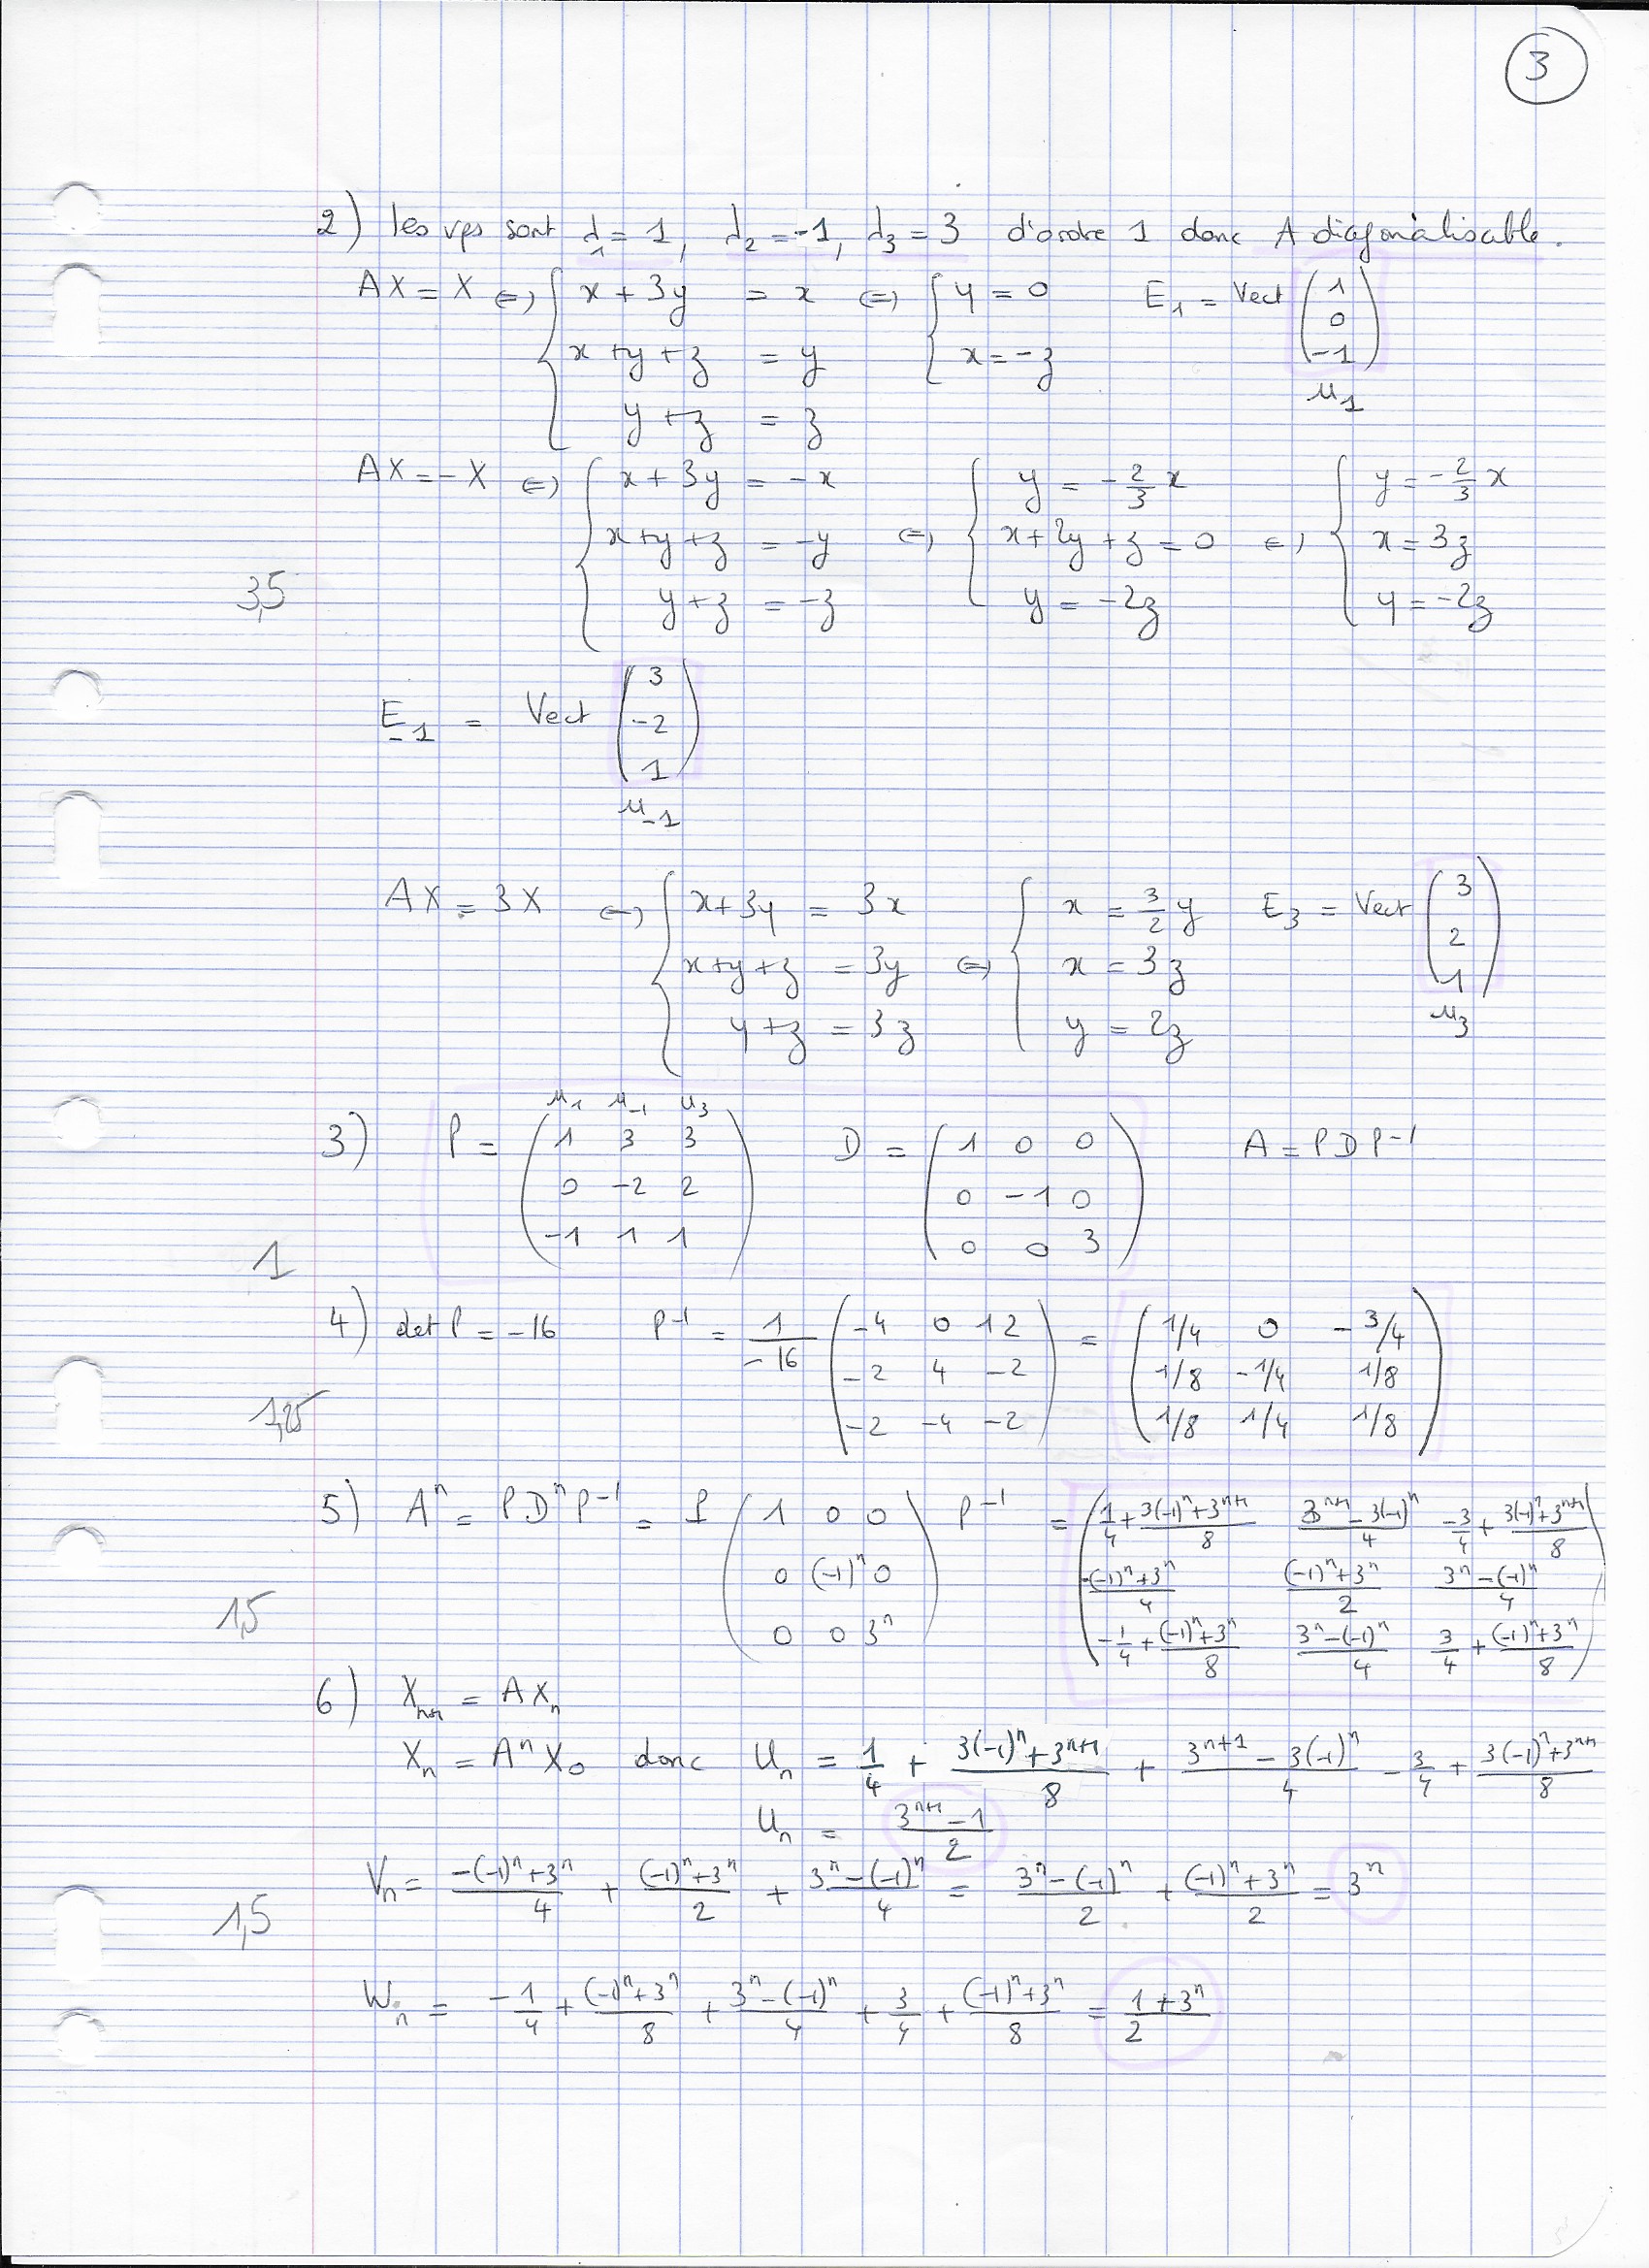 3
2) les vps sont λ₁ = 1, λ₂ = -1, λ₃ = 3 d'ordre 1 donc A diagonalisable.
AX = X ⇔ { x + 3y = x ; x + y + z = y ; y + z = z ⇔ { y = 0 ; x = -z E₁ = Vect (1 ; 0 ; -1) u₁
AX = -X ⇔ { x + 3y = -x ; x + y + z = -y ; y + z = -z ⇔ { y = -2/3 x ; x + 2y + z = 0 ; y = -2z ⇔ { y = -2/3 x ; x = 3z ; y = -2z
3,5
E₋₁ = Vect (3 ; -2 ; 1) u₋₁
AX = 3X ⇔ { x + 3y = 3x ; x + y + z = 3y ; y + z = 3z ⇔ { x = 3/2 y ; x = 3z ; y = 2z E₃ = Vect (3 ; 2 ; 1) u₃
u₁ u₋₁ u₃
3) P = (1 3 3 ; 0 -2 2 ; -1 1 1) D = (1 0 0 ; 0 -1 0 ; 0 0 3) A = PDP⁻¹
1
4) det P = -16 P⁻¹ = 1/-16 (-4 0 12 ; -2 4 -2 ; -2 -4 -2) = (1/4 0 -3/4 ; 1/8 -1/4 1/8 ; 1/8 1/4 1/8)
1,25
5) Aⁿ = PDⁿP⁻¹ = P (1 0 0 ; 0 (-1)ⁿ 0 ; 0 0 3ⁿ) P⁻¹ = (1/4 + (3(-1)ⁿ + 3ⁿ⁺¹)/8 (3ⁿ⁺¹ - 3(-1)ⁿ)/4 -3/4 + (3(-1)ⁿ + 3ⁿ⁺¹)/8 ; (-(-1)ⁿ + 3ⁿ)/4 ((-1)ⁿ + 3ⁿ)/2 (3ⁿ - (-1)ⁿ)/4 ; -1/4 + ((-1)ⁿ + 3ⁿ)/8 (3ⁿ - (-1)ⁿ)/4 3/4 + ((-1)ⁿ + 3ⁿ)/8)
1,5
6) Xₙ₊₁ = AXₙ
Xₙ = AⁿX₀ donc Uₙ = 1/4 + (3(-1)ⁿ + 3ⁿ⁺¹)/8 + (3ⁿ⁺¹ - 3(-1)ⁿ)/4 - 3/4 + (3(-1)ⁿ + 3ⁿ⁺¹)/8
Uₙ = (3ⁿ⁺¹ - 1)/2
Vₙ = (-(-1)ⁿ + 3ⁿ)/4 + ((-1)ⁿ + 3ⁿ)/2 + (3ⁿ - (-1)ⁿ)/4 = (3ⁿ - (-1)ⁿ)/2 + ((-1)ⁿ + 3ⁿ)/2 = 3ⁿ
1,5
Wₙ = -1/4 + ((-1)ⁿ + 3ⁿ)/8 + (3ⁿ - (-1)ⁿ)/4 + 3/4 + ((-1)ⁿ + 3ⁿ)/8 = (1 + 3ⁿ)/2